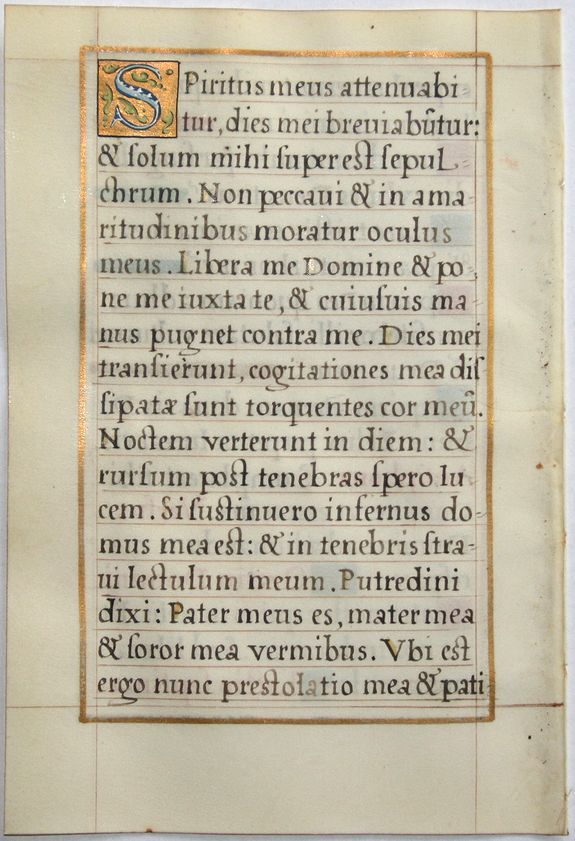 Spiritus meus attenuabi-
tur, dies mei breuiabūtur:
& ſolum mihi ſupereſt sepul-
chrum. Non peccaui & in ama-
ritudinibus moratur oculus
meus. Libera me Domine & po-
ne me iuxta te, & cuiuſuis ma-
nus pugnet contra me. Dies mei
tranſierunt, cogitationes mea diſ
ſipatæ ſunt torquentes cor meū.
Noctem verterunt in diem: &
rurſum poſt tenebras ſpero lu-
cem. Si ſuſtinuero infernus do-
mus mea eſt: & in tenebris ſtra-
ui lectulum meum. Putredini
dixi: Pater meus es, mater mea
& ſoror mea vermibus. Vbi eſt
ergo nunc preſtolatio mea & pati-